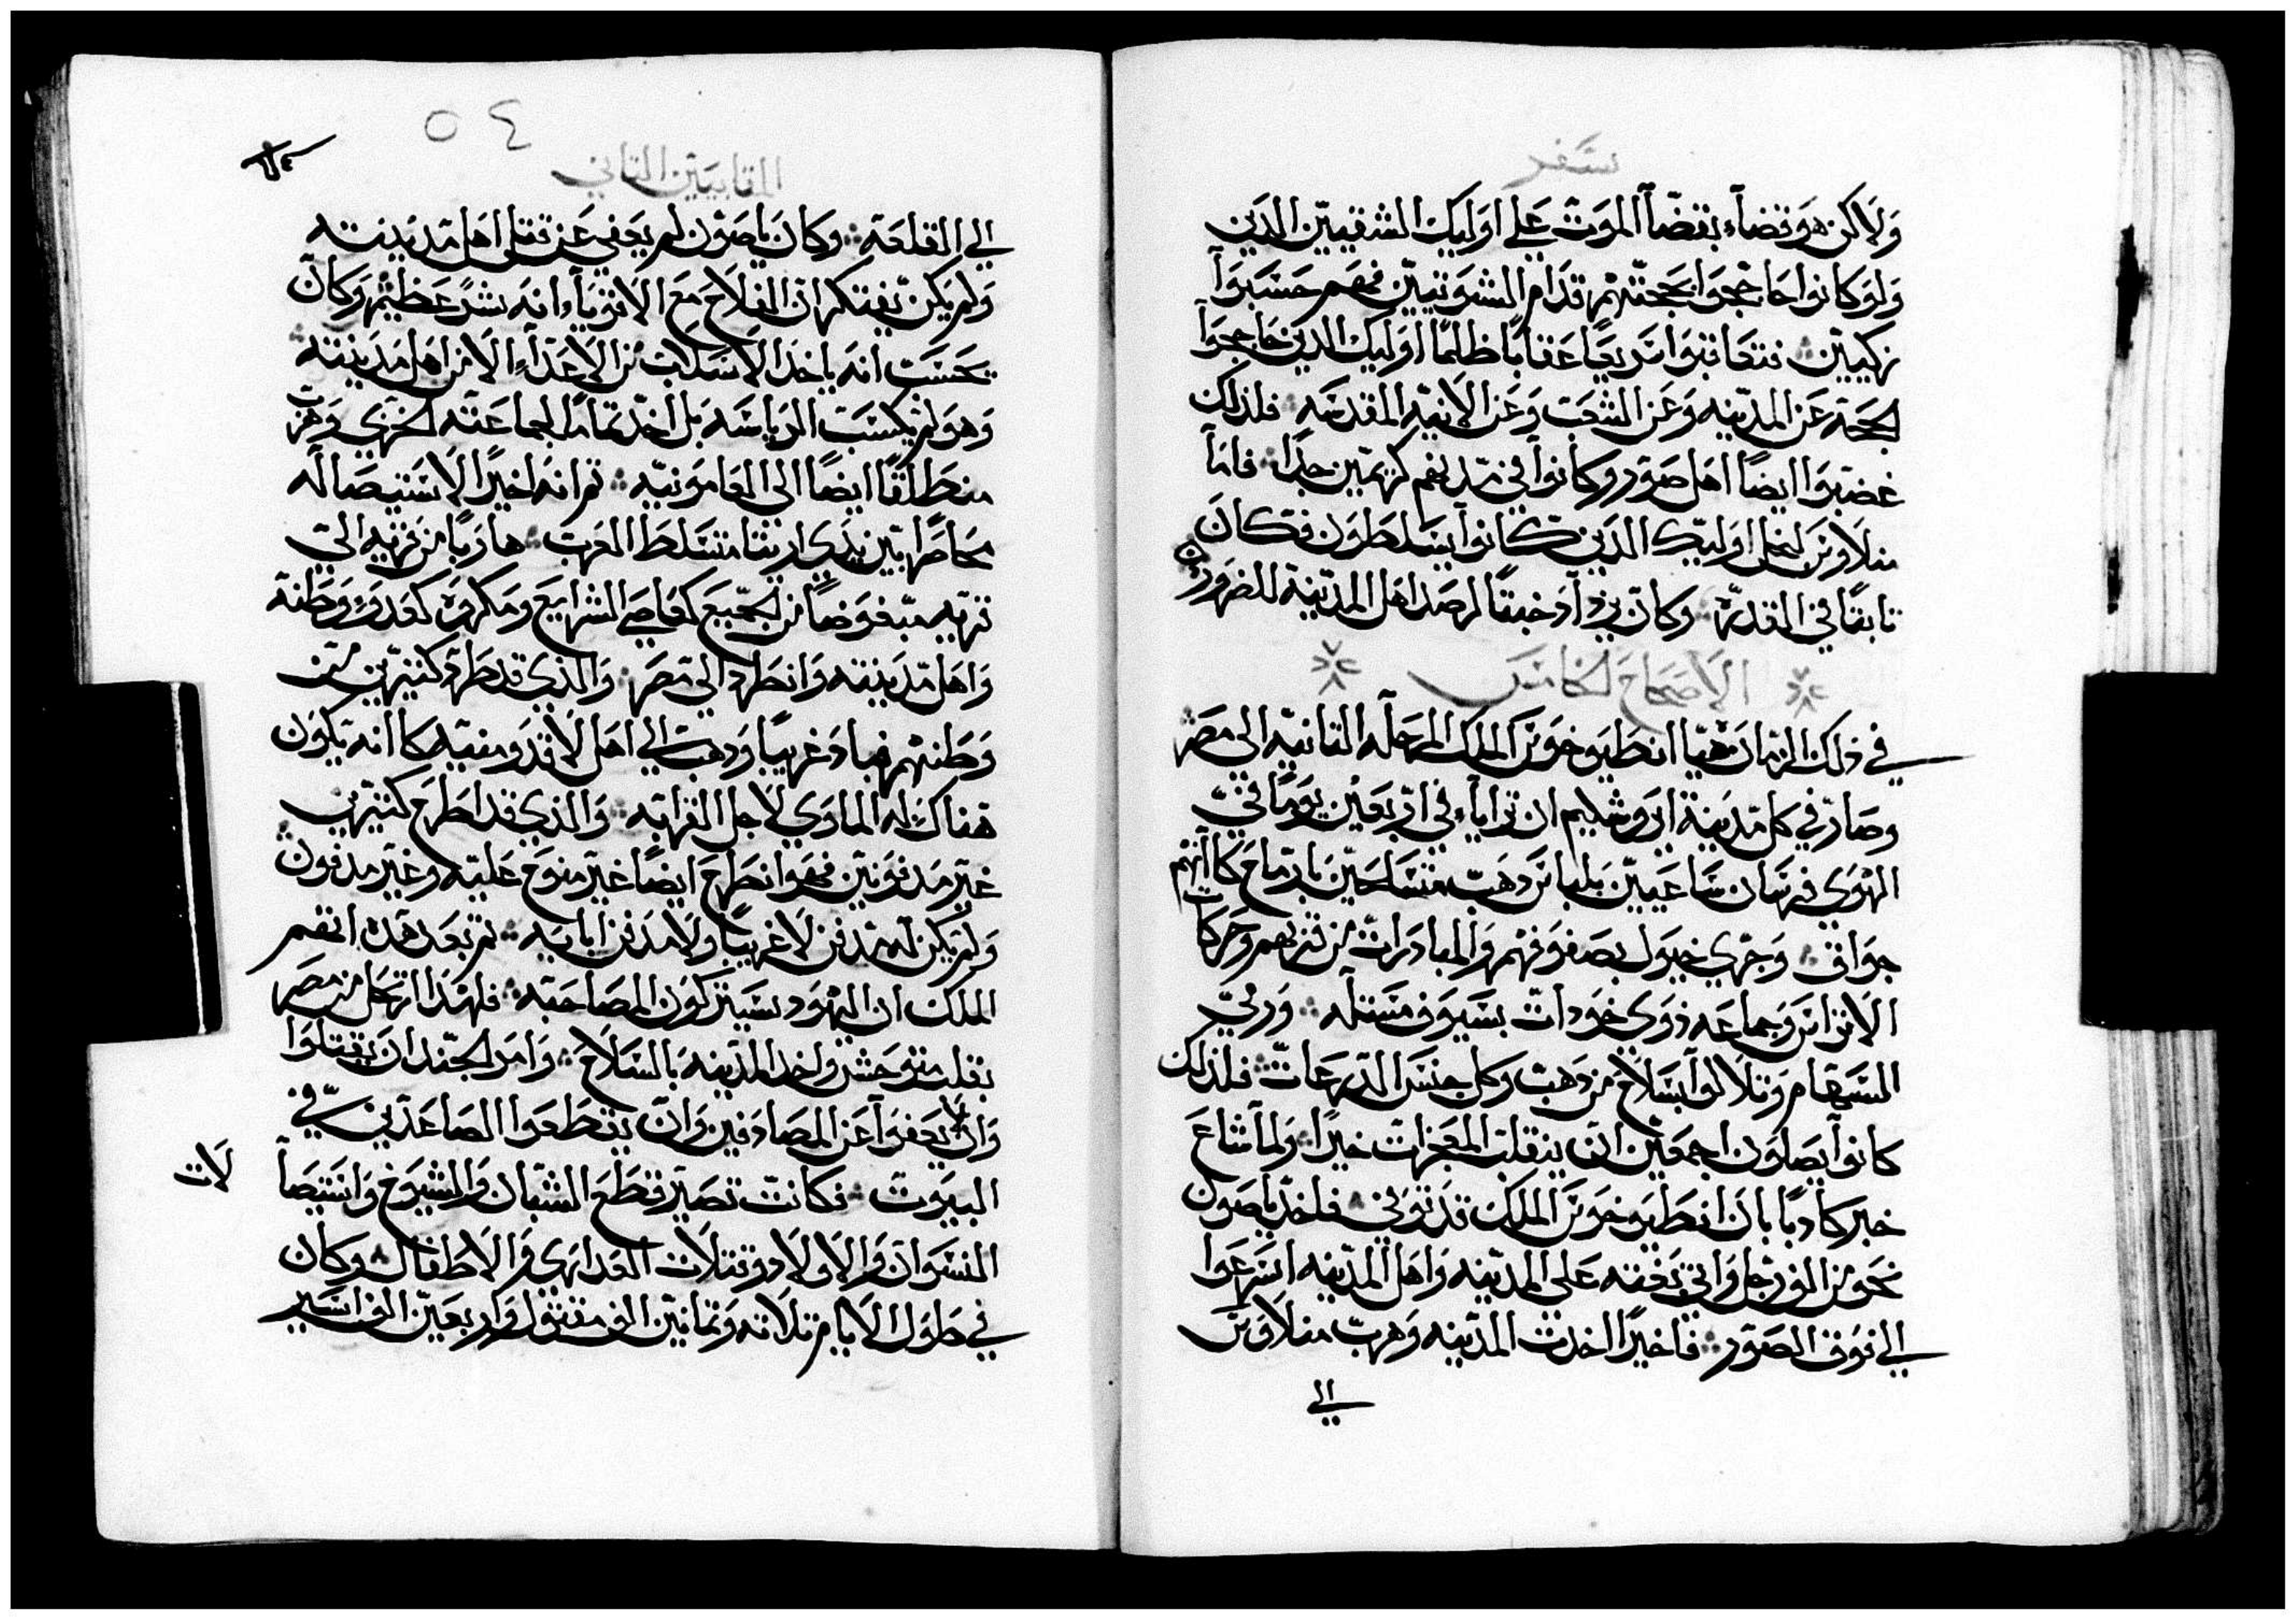 سفر
ولاكن هو قضاء بقضا الموت علي اوليك الشقيين الدين
ولو كانوا حاججوا بججتهم قدام الشونتيين فهم حسبوا
زكيين فتعاقبوا سريعا عقابا ظلما اوليك الدين حاججوا
لحجة عن المدينه وعن الشعب وعن الانيه المقدسه فلذلك
غضبوا ايضا اهل صور وكانوا في مدفنهم كريمين جدا فاما
منلاوس لبخل اوليك الدين كانوا يتسلطون فكان
تابقا في القدره وكان يزداد خبقا لرصد اهل المدينة للضرور
الاصحاح الخامس
في ذلك الزمان هيا انطيوخوس الملك المرحله التانيه الى مصر
وصار في كل مدينة ايروشليم ان تراياء في اربعين يوما في
الهوى فرسان ساعيين بلباس دهب متسلحين بارماح كاانهم
جواق وجرى خيول بصفوفهم والمبادرات من قربهم وحركات
الاتراس وجماعه ذوي خودات بسيوف مستله ورمي
السهام وتلالوا بسلاح من دهب وكل جنس الدرعات فلذلك
كانوا يصلون اجمعين ان ينقلب المعجزات خيرا ولما شاع
خبر كادبا بان انطيوخوس الملك قد توفي فلخد ياصون
نحو من الف رجل واتي بغفته على المدينه واهل المدينه اسرعوا
الي فوق الصور فاخيرا اخدت المدينه وهرب منلاوس
الي
٥٤
المقابيين التاني
الي القلعة وكان ياصون لم يعفي عن قتل اهل مدينته
ولم يكن يفتكر ان الفلاح مع الاقرباء انه شر عظيم وكان
يحسب انه ياخد الاسلاب من الاعداء لا من اهل مدينته
وهو لم يكسب الرياسه بل اخد تماما لجماعته الخزي وهرب
منطلقا ايضا الى العامونيه تم انه اخيرا لاستيصاله
محاصرا بين يدي اريتا متسلط العرب هاربا من قريه الي
قريه مبغوضا من الجميع كعاصي الشرايع ومكروه كعدو وطنه
واهل مدينته وانطرد الي مصر والذي قد طرد كتيرين من
وطنهم فباد غريبا ودهب الي اهل لاقدومنيه كاانه يكون
هناك له الماوي لاجل القرابه والذي قد اطرح كتيرين
غير مدفونين فهو انطرح ايضا غير منوح عليه وغير مدفون
ولم يكن له مدفن لا غريبا ولا مدفن ابايه تم بعد هدا اتهم
الملك ان اليهود سيتركون المصاحبه فلهدا ارتحل من مصر
بقلب متوحش واخد المدينه بالسلاح وامر الجند ان يقتلوا
وان لا يعفوا عن المصادفين وان يقطعوا الصاعدين في
البيوت فكانت تصير قطع الشبان والشيوخ واستيصا
لات
النسوان والاولاد وقتلات العدارى والاطفال وكان
في طول الايام تلاته وتمانين الف مقتول واربعين الف اسير